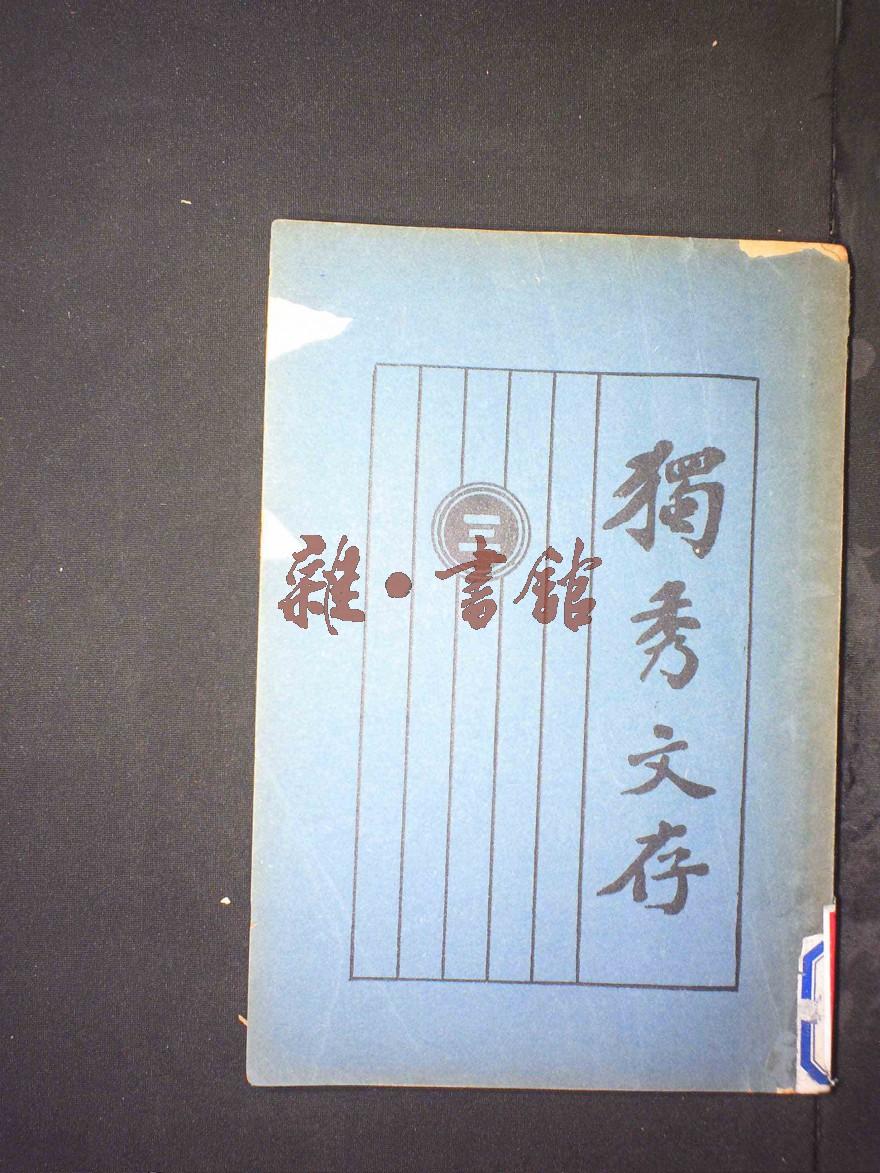 獨秀文存
三
雜·書館